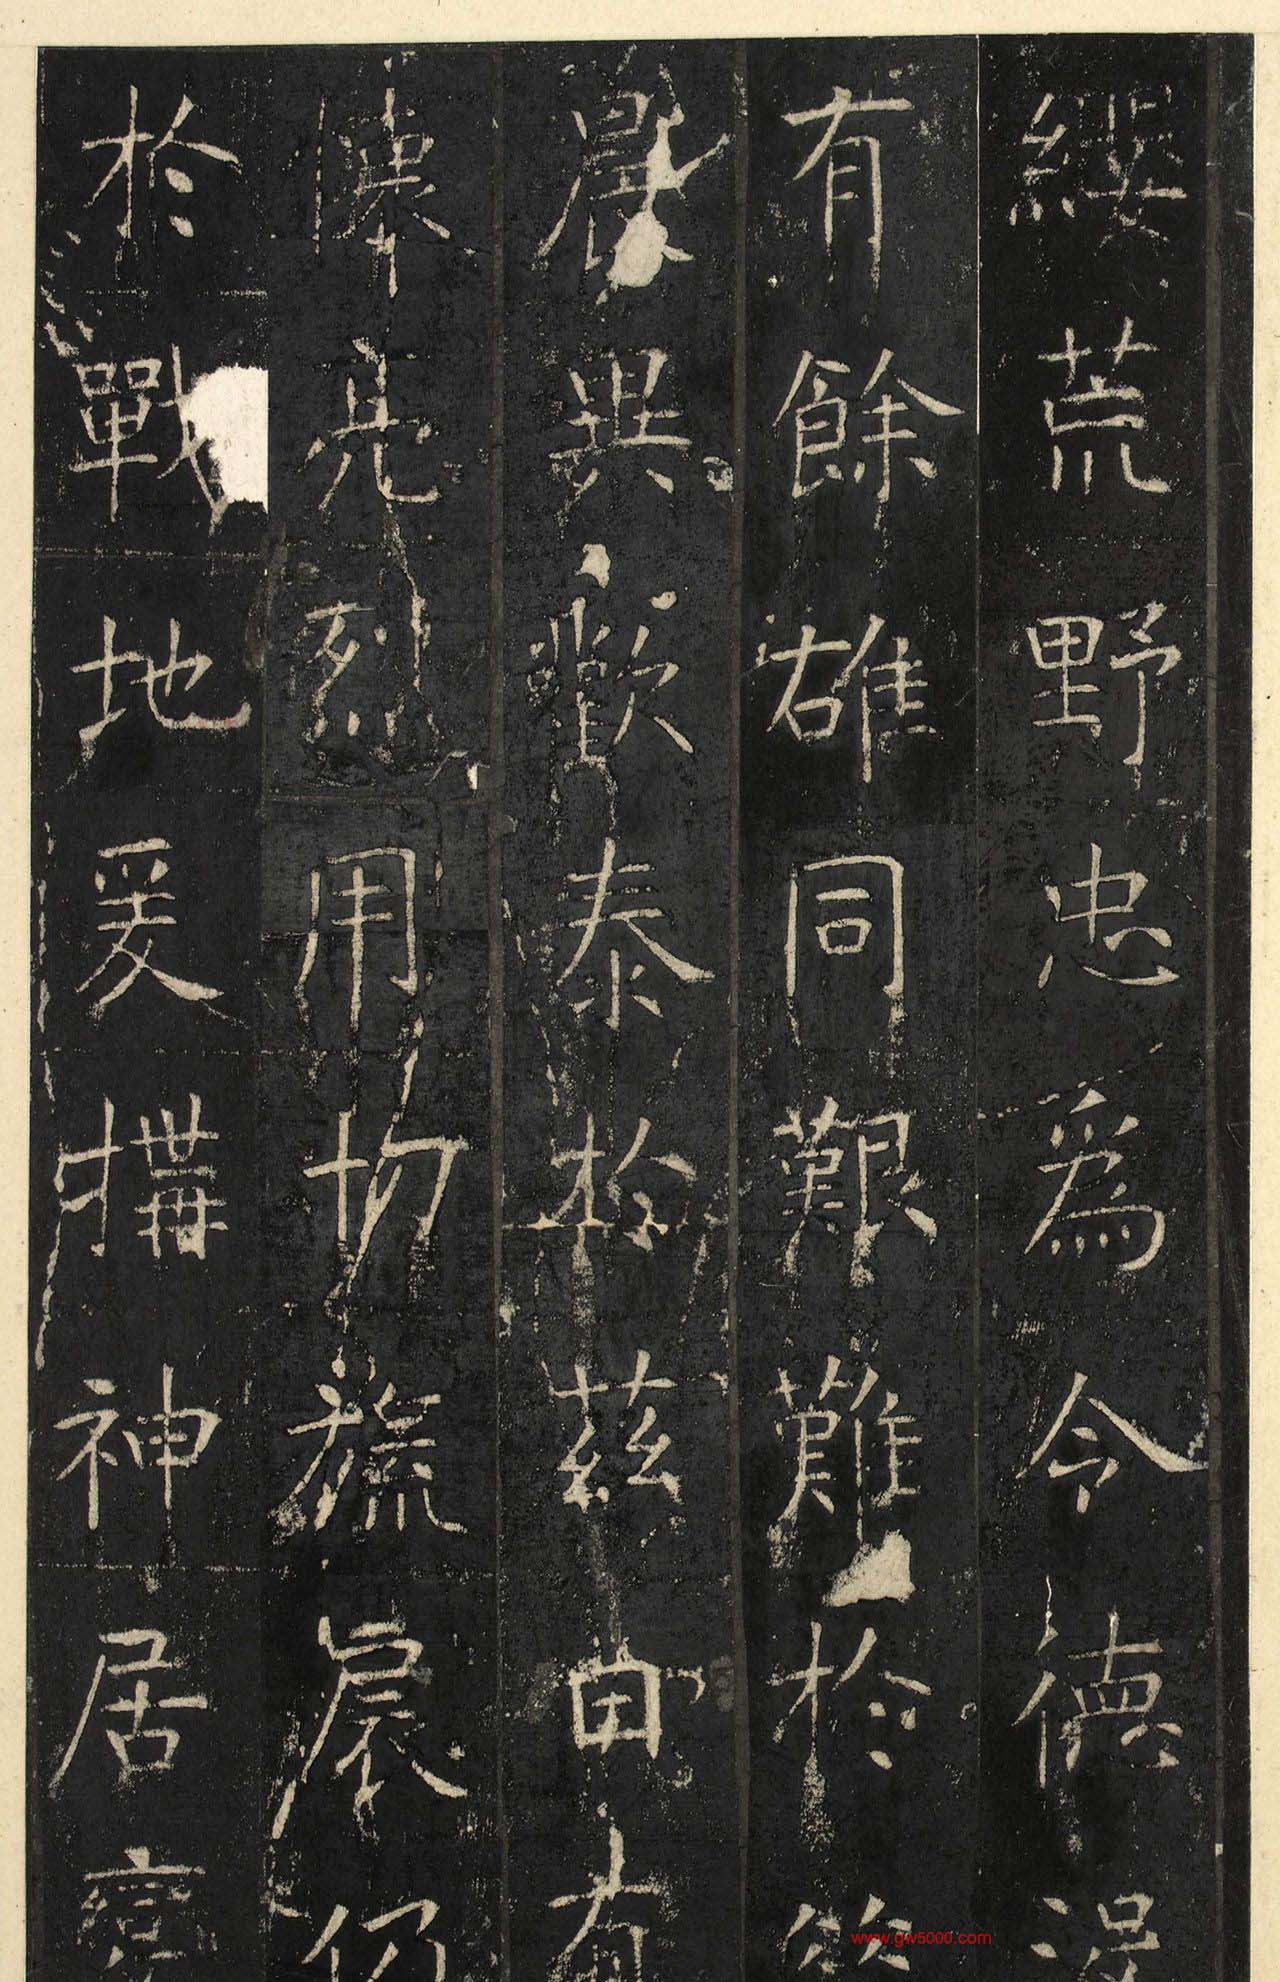 纓荒野忠爲令德
有餘雄同艱難於
晨異歡泰於茲日有
亮烈用切旒扆仍
於戰地爰構神居
www.gw5000.com